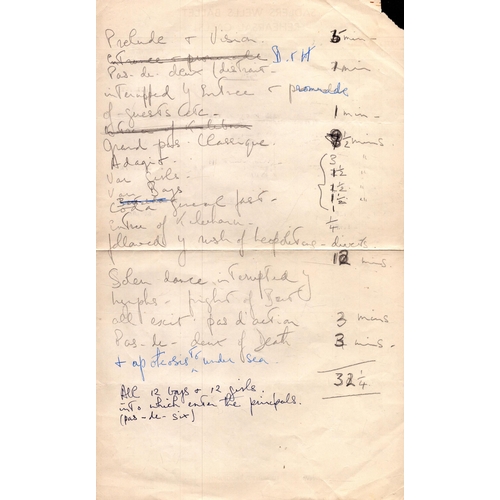 Prelude + Vision. 5 min-
Entrance + promenade D. + H
Pas-de-deux (distant- 1 min
interrupted by Entrée + promenade
of guests etc. 1 min-
Entrée of
Grand pas Classique. 7½ mins
Adagio. 3 "
Var Girls. 1½ "
Var Boys 1½ "
Coda general fast- 1
Entrée of ¼
followed by rush of - diverts.
12 mins.
Solem dance interrupted by
Nymphs - flight of Boat
all exit: pas d'action 3 mins
Pas-de-deux of Death 3 mins-
+ apoteosis to under sea.
32¼
All 12 boys + 12 girls.
into which enter the principals.
(pas-de-six)